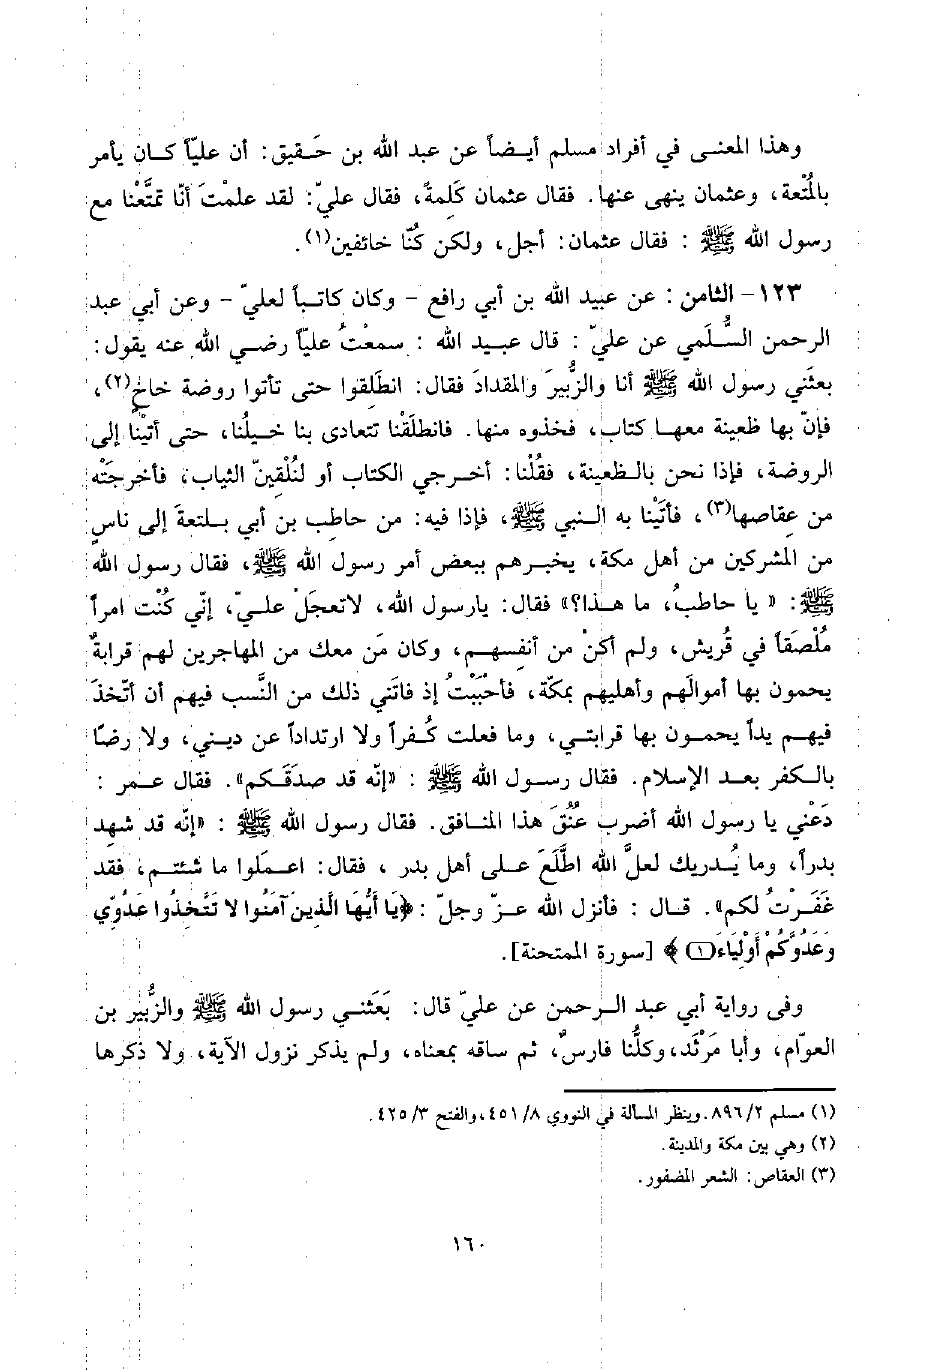 وهذا المعنى في أفراد مسلم أيضاً عن عبد الله بن حَقيق: أن عليّاً كان يأمر
بالمُتْعة، وعثمان ينهى عنها. فقال عثمان كَلِمةً، فقال عليّ: لقد علمْتَ أنّا تمتَّعْنا مع
رسول الله ﷺ : فقال عثمان: أجل، ولكن كُنّا خائفين(١).
١٢٣- الثامن : عن عبيد الله بن أبي رافع - وكان كاتباً لعليّ - وعن أبي عبد
الرحمن السُّلَمي عن عليّ : قال عبيد الله : سمعْتُ عليّاً رضي الله عنه يقول:
بعثَني رسول الله ﷺ أنا والزُّبيرَ والمقدادَ فقال: انطَلِقوا حتى تأتوا روضة خاخٍ(٢)،
فإنّ بها ظعينة معها كتاب، فخذوه منها. فانطلَقْنا تتعادى بنا خيلُنا، حتى أتيْنا إلى
الروضة، فإذا نحن بالظعينة، فقُلْنا: أخرجي الكتاب أو لنُلْقِينّ الثياب، فأخرجَتْه
من عِقاصها(٣)، فأتَيْنا به النبي ﷺ، فإذا فيه: من حاطِب بن أبي بلتعةَ إلى ناسٍ
من المشركين من أهل مكة، يخبرهم ببعض أمر رسول الله ﷺ، فقال رسول الله
ﷺ: « يا حاطبُ، ما هذا؟» فقال: يارسول الله، لاتعجَلْ عليّ، إنّي كُنْت امرأً
مُلْصَقاً في قُريش، ولم أكنْ من أنفسِهم، وكان مَن معك من المهاجرين لهم قرابةٌ
يحمون بها أموالَهم وأهليهم بمكّة، فأحْبَبْتُ إذ فاتَني ذلك من النَّسب فيهم أن أتّخذَ
فيهم يداً يحمون بها قرابتي، وما فعلت كُفراً ولا ارتداداً عن ديني، ولا رضًا
بالكفر بعد الإسلام. فقال رسول الله ﷺ : «إنّه قد صدَقَكم». فقال عمر :
دَعْني يا رسول الله أضرب عنُقَ هذا المنافق. فقال رسول الله ﷺ : «إنّه قد شهِد
بدراً، وما يُدريك لعلَّ الله اطَّلَعَ على أهل بدر ، فقال: اعمَلوا ما شئتم، فقد
غَفَرْتُ لكم». قال : فأنزل الله عزّ وجلّ : ﴿يَا أَيُّهَا الَّذِينَ آمَنُوا لا تَتَّخِذُوا عَدُوِّي
وَعَدُوَّكُمْ أَوْلِيَاءَ (١)﴾ [سورة الممتحنة].
وفى رواية أبي عبد الرحمن عن عليّ قال: بَعَثني رسول الله ﷺ والزُّبير بن
العوّام، وأبا مَرْثَد، وكلُّنا فارسٌ، ثم ساقه بمعناه، ولم يذكر نزول الآية، ولا ذكرها
(١) مسلم ٢/ ٨٩٦. وينظر المسألة في النووي ٨/ ٤٥١، والفتح ٣/ ٤٢٥.
(٢) وهي بين مكة والمدينة.
(٣) العقاص: الشعر المضفور.
١٦٠